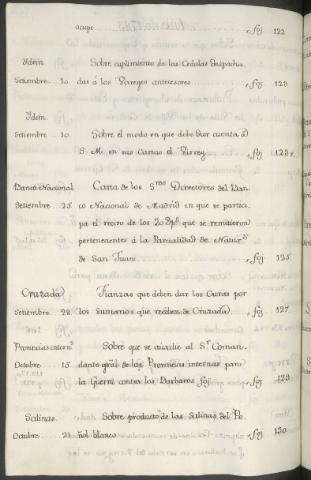 ocupe. foj 122
Ydem. Sobre cuplimiento de las Cedulas despacha-
Setiembre. 10 das á los Virreyes antecesores foj 123
Ydem.
Setiembre. 10. Sobre el modo en que debe dar cuenta á
S. M. en sus Cartas el Virrey foj 123
Banco Nacional Carta de los S.res Directores del Ban-
Setiembre. 25 co Nacional de Madrid en que se partici-
pa el recivo de los que se remitieron
pertenecientes á la Parcialidad de Natur.s
de San Juan foj 125
Cruzada Fianzas que deben dar los Curas por
Setiembre. 28. los Sumarios que reciben de Cruzada foj 127
Provincias intern.s Sobre que se auxilie al S.r Coman-
Octubre. 15. dante gral de las Provincias internas para
la Guerra contra los Barbaros foj 129
Salinas. Sobre producto de las Salinas del Pe-
Octubre. 21. ñol blanco foj 130